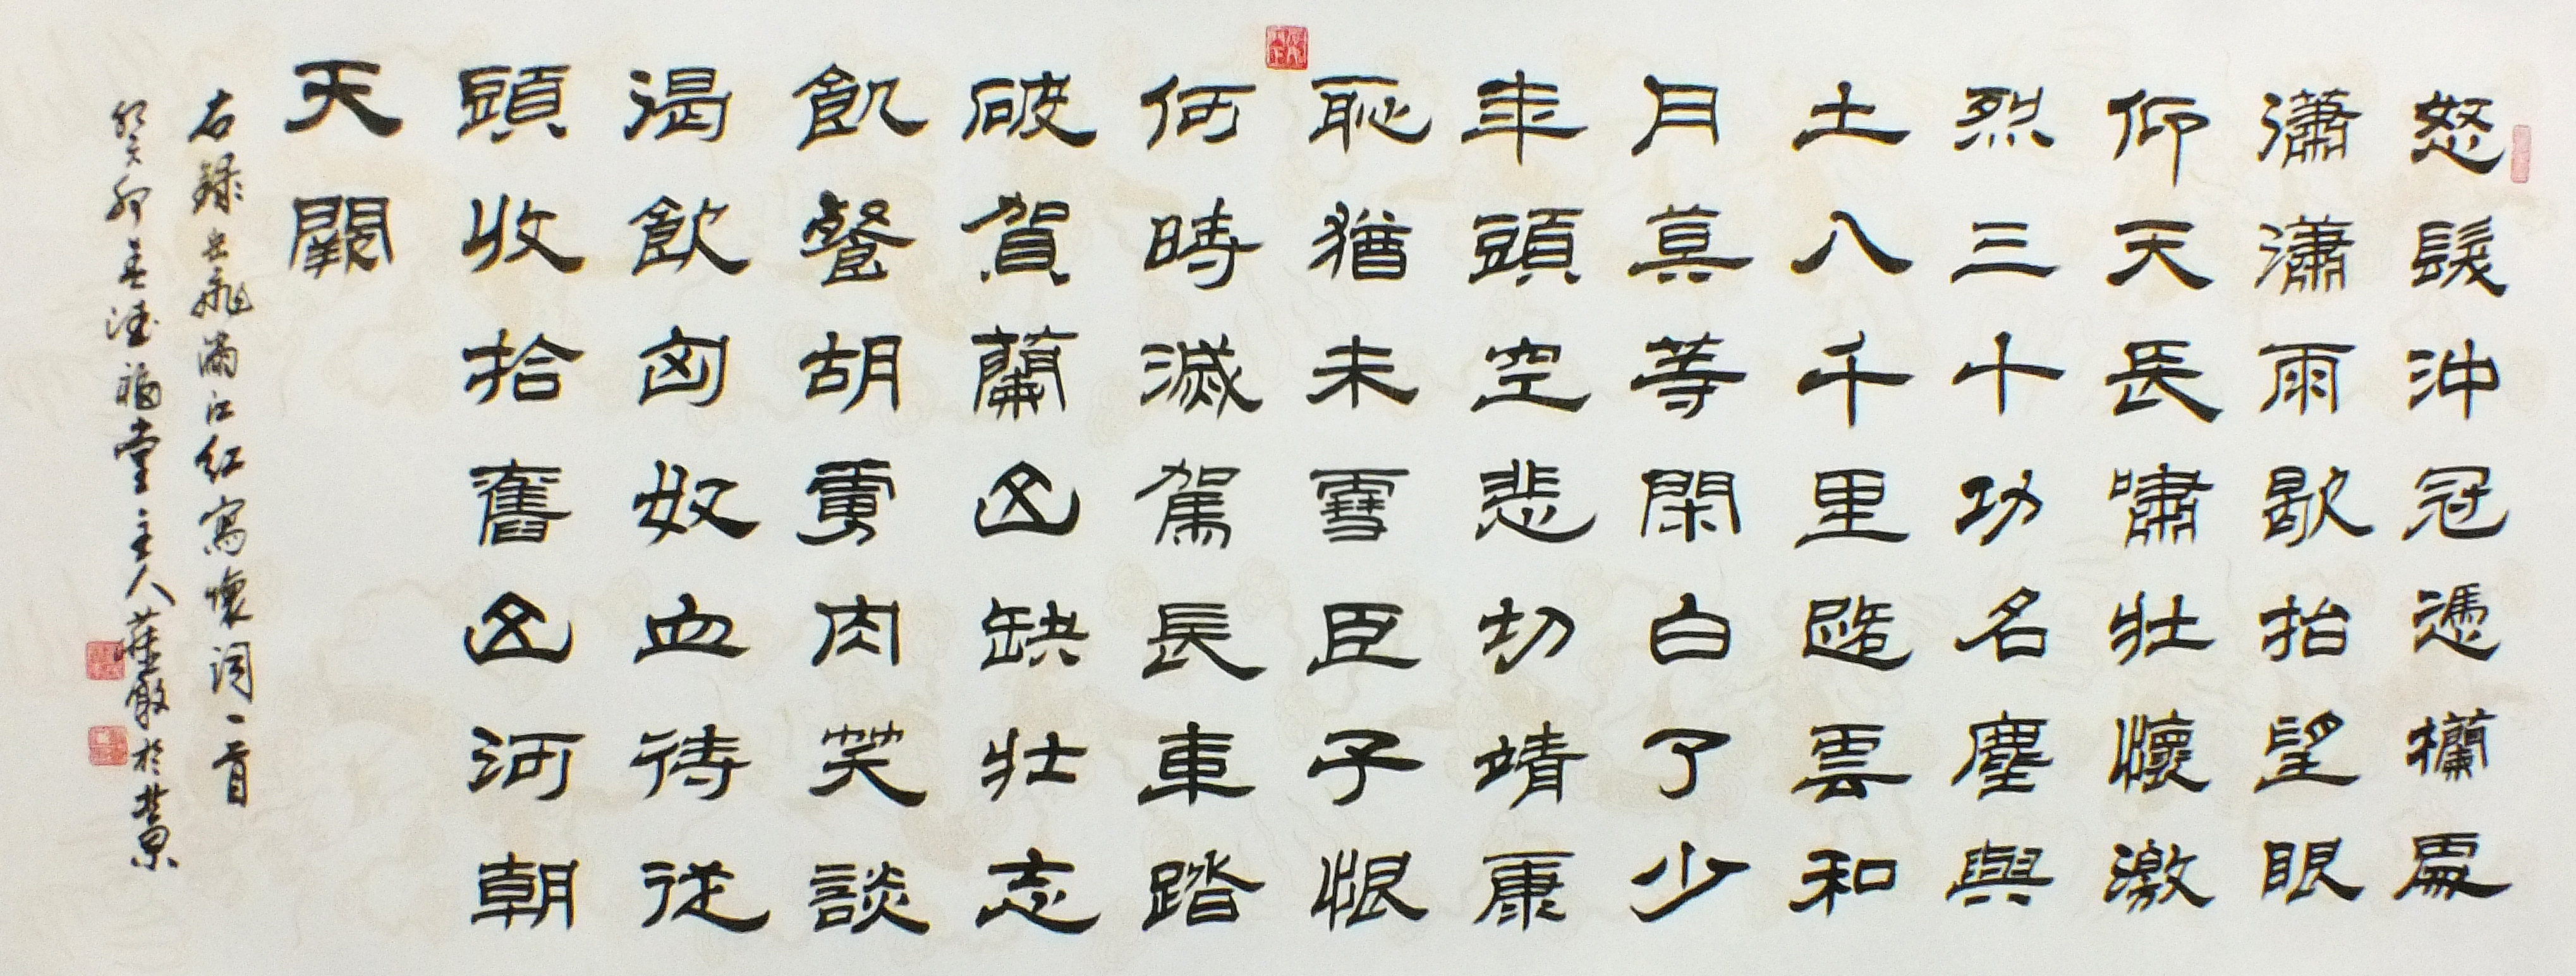 怒髮沖冠憑欄處
瀟瀟雨歇抬望眼
仰天長嘯壯懷激
烈三十功名塵與
土八千里路雲和
月莫等閑白了少
年頭空悲切靖康
恥猶未雪臣子恨
何時滅駕長車踏
破賀蘭山缺壯志
飢餐胡虜肉笑談
渴飲匈奴血待從
頭收拾舊山河朝
天闕
右錄岳飛滿江紅寫懷詞一首
癸卯春 福堂主人莊嚴於